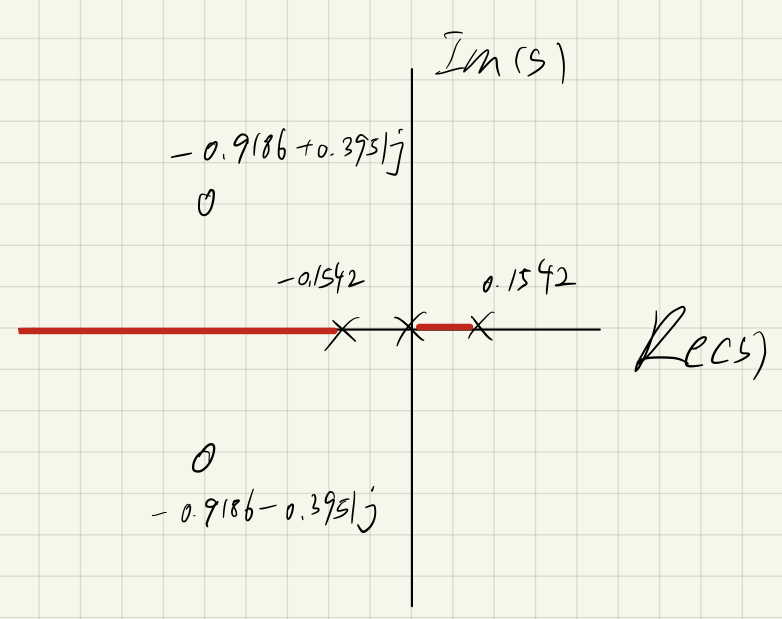 Im(s)
-0.9186+0.3951j
-0.1542
0.1542
Re(s)
-0.9186-0.3951j